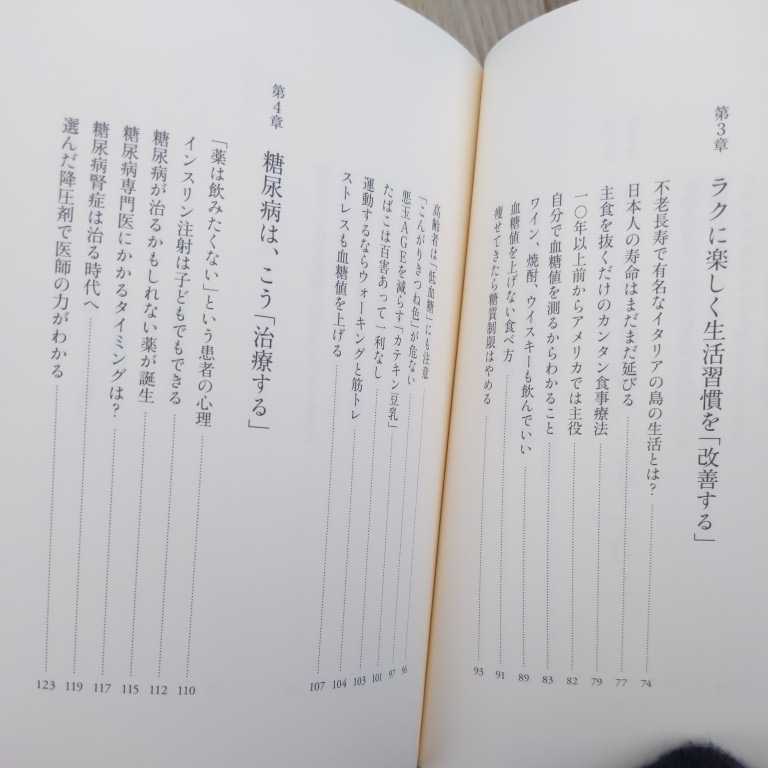 第3章 ラクに楽しく生活習慣を「改善する」
不老長寿で有名なイタリアの島の生活とは？ 74
日本人の寿命はまだまだ延びる 77
主食を抜くだけのカンタン食事療法 79
一〇年以上前からアメリカでは主役 82
自分で血糖値を測るからわかること 83
ワイン、焼酎、ウイスキーも飲んでいい 89
血糖値を上げない食べ方 91
痩せてきたら糖質制限はやめる 93
高齢者は「低血糖」にも注意 95
「こんがりきつね色」が危ない 97
悪玉AGEを減らす「カテキン豆乳」 101
たばこは百害あって一利なし 103
運動するならウォーキングと筋トレ 104
ストレスも血糖値を上げる 107
第4章 糖尿病は、こう「治療する」
「薬は飲みたくない」という患者の心理 110
インスリン注射は子どもでもできる 112
糖尿病が治るかもしれない薬が誕生 115
糖尿病専門医にかかるタイミングは？ 117
糖尿病腎症は治る時代へ 119
選んだ降圧剤で医師の力がわかる 123